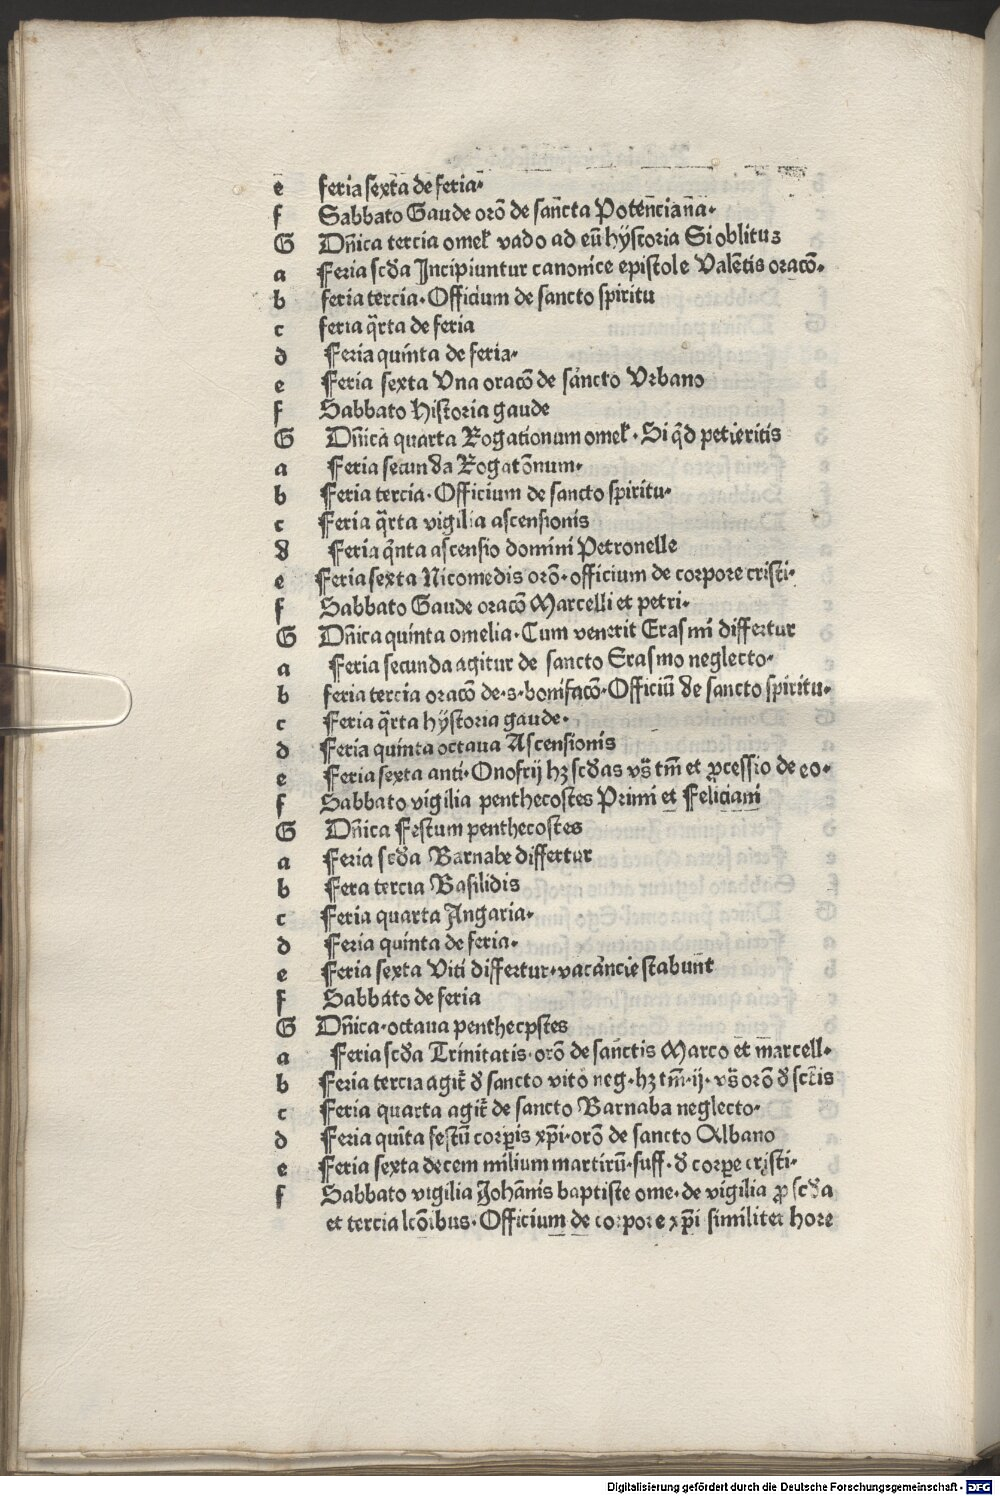 e feria sexta de feria·
f Sabbato Gaude orō de sancta Potenciana·
G Dñica tercia omel' vado ad eū hÿstoria Si oblitus
a Feria scda Incipiuntur canonice epistole Valētis oracō·
b feria tercia· Officium de sancto spiritu
c feria q̄rta de feria
d Feria quinta de feria·
e Feria sexta Vna oracō de sancto Vrbano
f Sabbato Historia gaude
G Dñica quarta Rogationum omel'· Si qd petieritis
a Feria secunda Rogatōnum·
b Feria tercia· Officium de sancto spiritu·
c Feria q̄rta vigilia ascensionis
d Feria qnta ascensio domini Petronelle
e Feria sexta Nicomedis orō· officium de corpore cristi·
f Sabbato Gaude oracō Marcelli et petri·
G Dñica quinta omelia· Cum venerit Erasmi differtur
a Feria secunda agitur de sancto Erasmo neglecto·
b feria tercia oracō de·s·bonifacō·Officiū de sancto spiritu·
c Feria q̄rta hÿstoria gaude·
d Feria quinta octaua Ascensionis
e Feria sexta anti· Onofrij hꝫ scdas vs̄ tm̄ et ꝓcessio de eo·
f Sabbato vigilia penthecostes Primi et Feliciani
G Dñica Festum penthecostes
a Feria scda Barnabe differtur
b Fera tercia Basilidis
c Feria quarta Angaria·
d Feria quinta de feria·
e Feria sexta Viti differtur·vacancie stabunt
f Sabbato de feria
G Dñica·octaua penthecpstes
a Feria scda Trinitatis·orō de sanctis Marco et marcell·
b Feria tercia agit̄ d sancto vito neg·hꝫ tm̄·ij·vs̄ orō d sctis
c Feria quarta agit̄ de sancto Barnaba neglecto·
d Feria quīta festū corꝑis xp̄i·orō de sancto Albano
e Feria sexta decem milium martirū·suff·d corpe cristi·
f Sabbato vigilia Johānis baptiste ome·de vigilia ꝓ scda
et tercia lcōibus·Officium de corpore xp̄i similiter hore
Digitalisierung gefördert durch die Deutsche Forschungsgemeinschaft - DFG